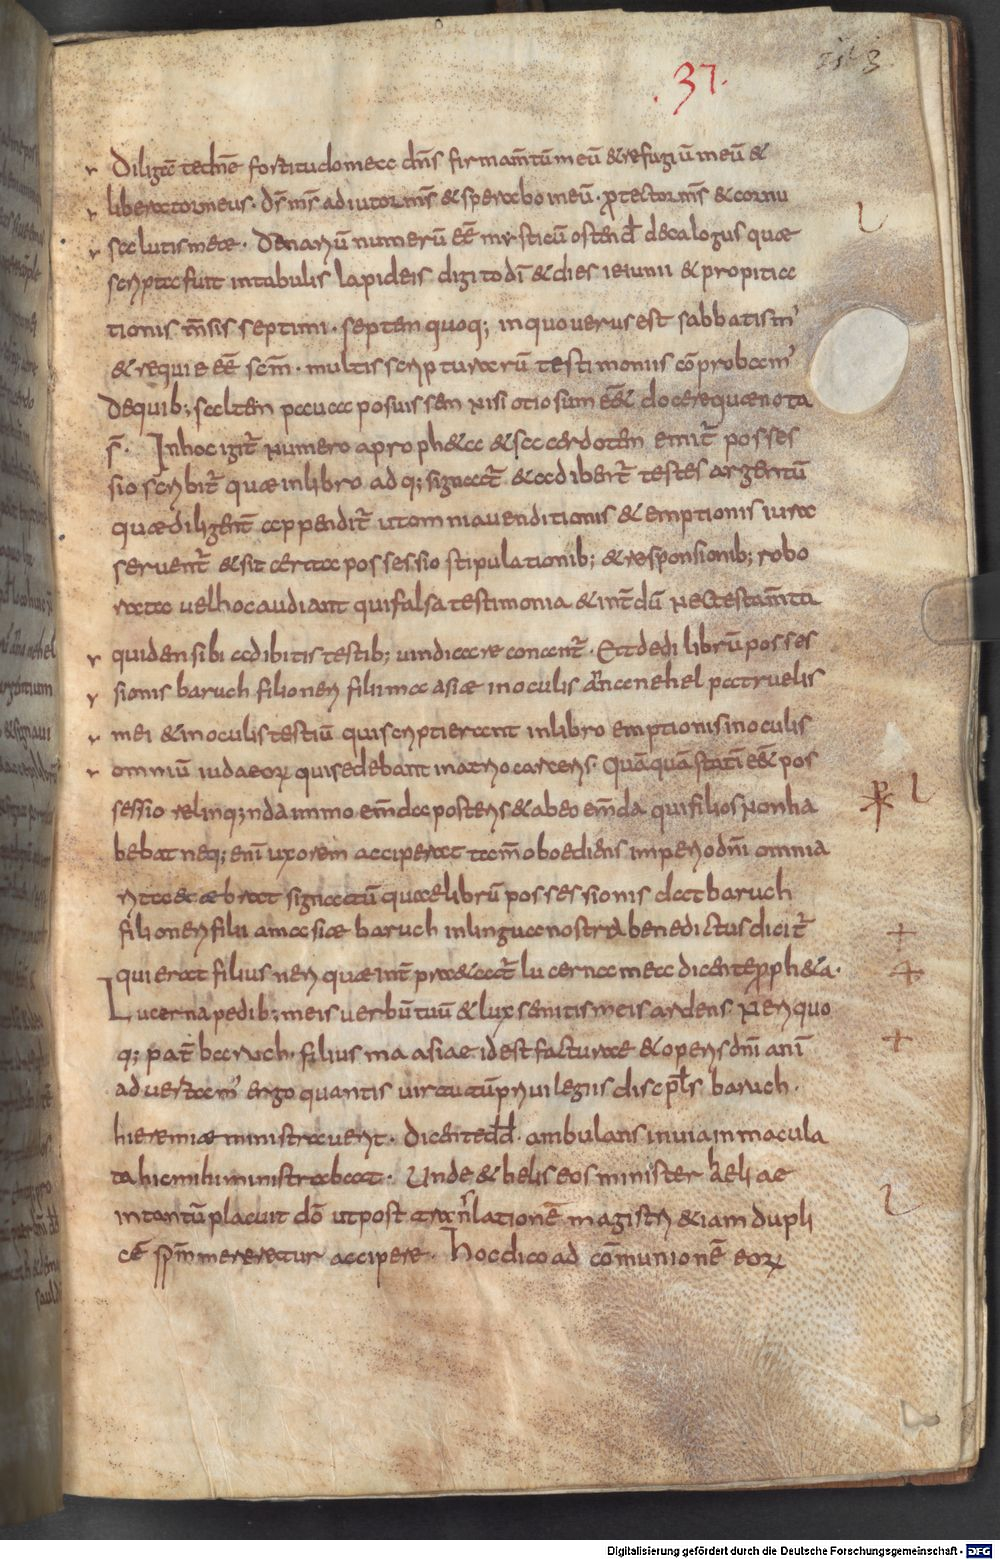 .37.
Diligā te dn̄e fortitudo mea dn̄s firmam̄tū meū & refugiū meū &
liberator meus. ds̄ ms̄ adiutor ms̄ & sperabo in eū. ꝓtector ms̄ & cornu
salutis meae. Denariū numerū eē mysticū ostend̄ decalogus quae
scrypta fuit in tabulis lapideis digito dī & dies ieiunii & propitia
tionis m̄sis septimi. septem quoq; in quo verus est sabbatism'
& requie eē sc̄m. multis scrypturarū testimoniis cōprobam'
De quib; saltem pauca posuissem nisi otiosum eē& docere quae nota
s̄. In hoc igit̄ numero a proph&a & sacerdotem emit̄ posses
sio scrybit̄ quae in libro ad q; signat̄ & adibent̄ testes argentū
quae diligent̄ appendit̄ ut omnia venditionis & emptionis iura
servent̄ & sit certa possessio stipulationib; & responsionib; robo
rata vel hoc audiant qui falsa testimonia & int̄dū nec testam̄ta
quidem sibi adibitis testib; uindicare conant̄. Et dedi librū posses
sionis baruch filio nery filii maasiae in oculis anamehel patruelis
mei & in oculis testiū qui scrypti erant in libro emptionis in oculis
omniū iudaeoꝝ qui sedebant in atryo carcerys. Quāquā statī eē& pos
sessio relinq;nda immo em̄da posterys & ab eo em̄da qui filios non ha
bebat neq; enī uxorem acciperat tam̄ oboediens imperyo dn̄i omnia
ryte caelebrat signatū quae librū possessionis dat baruch
filio nery filii amasiae baruch in lingua nostra benedictus dicit̄
qui erat filius nery quae int̄pr&at̄ lucerna mea dicente proph&a.
Lucerna pedib; meis verbū tuū & lux semitis meis ardens. Nery quo
q; pat̄ baruch. filius maasiae id est facturae & operys dn̄i anī
advertam' ergo quantis virtutū pryvilegiis discipl̄s baruch.
hieremiae ministraveryt. Dicente dd̄. ambulans in via inmacula
ta hic mihi ministrabat. Unde & heliseos minister heliae
in tantū placuit dō ut post translationē magistry &iam dupli
cē sp̄m mereretur accipere. Hoc dico ad cōmunionē eoꝝ
Digitalisierung gefördert durch die Deutsche Forschungsgemeinschaft - DFG